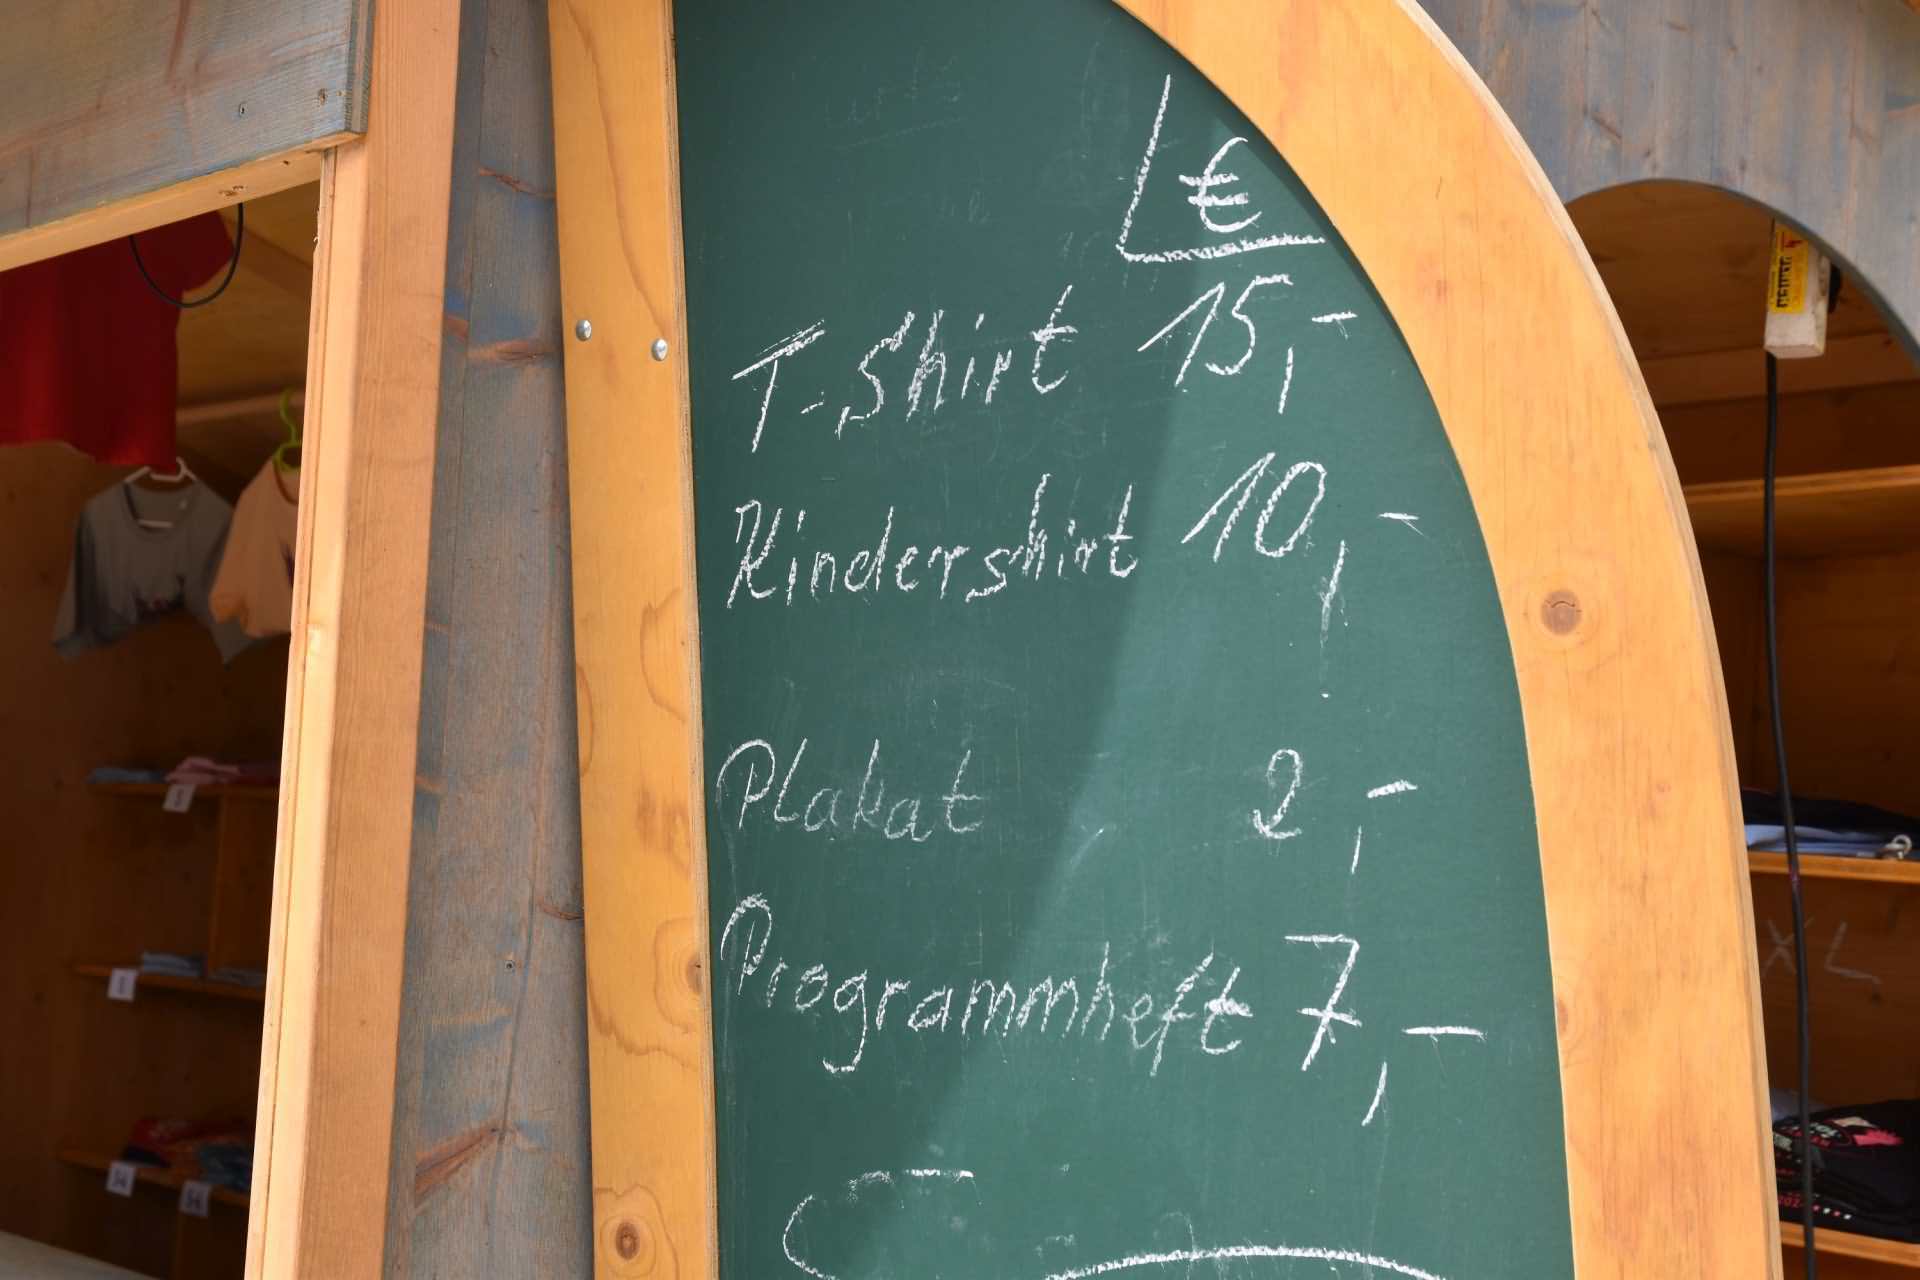 €
T-Shirt 15,-
Kindershirt 10,-
Plakat 2,-
Programmheft 7,-
XL